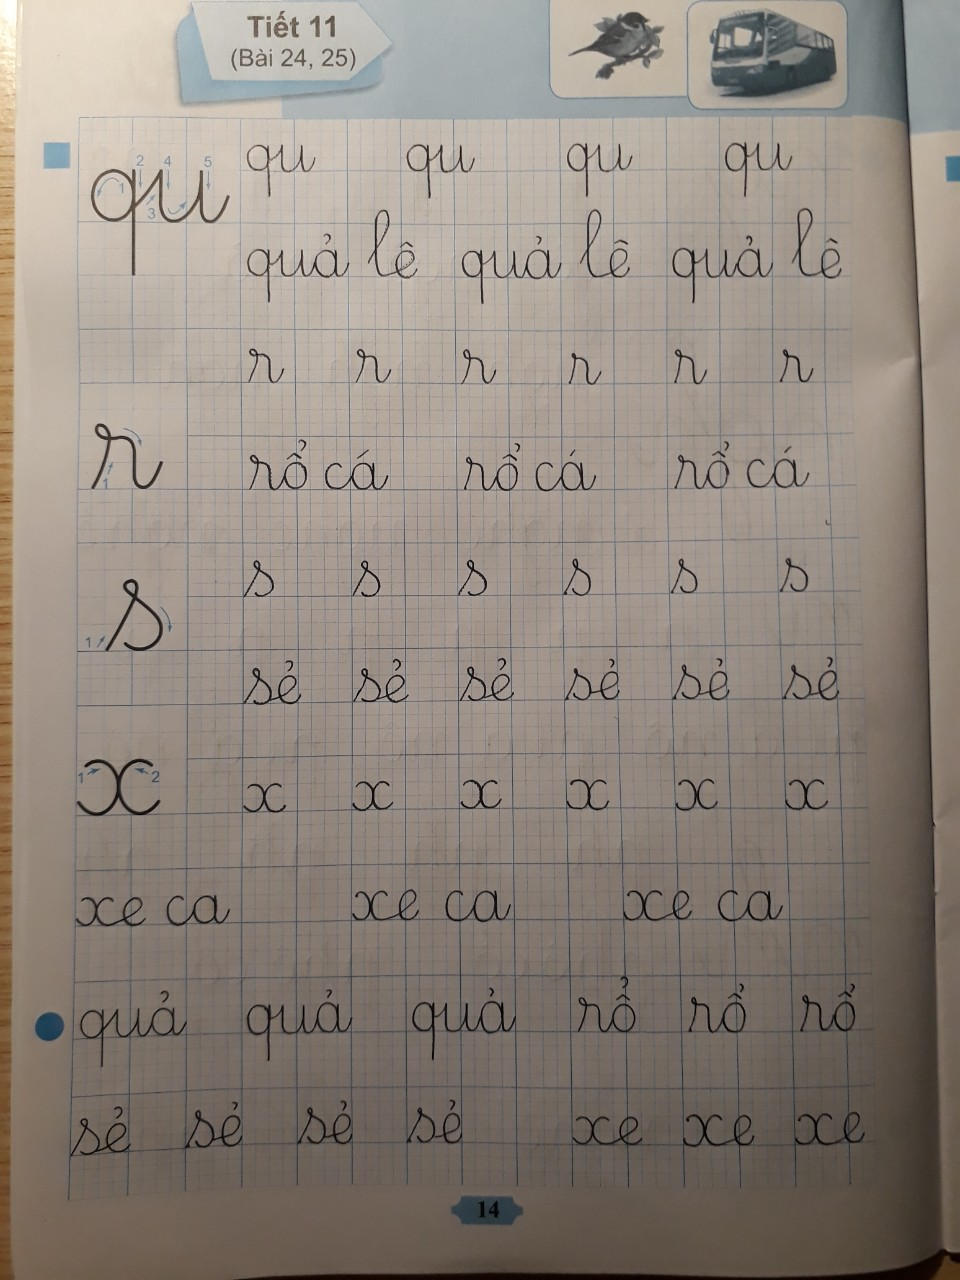 Tiết 11
(Bài 24, 25)
qu qu qu qu qu
1 2 3 4 5
quả lê quả lê quả lê
r r r r r r
r
1
rổ cá rổ cá rổ cá
s s s s s s
s
1
sẻ sẻ sẻ sẻ sẻ sẻ
x
1 2
x x x x x x
xe ca xe ca xe ca
quả quả quả rổ rổ rổ
sẻ sẻ sẻ sẻ xe xe xe
14